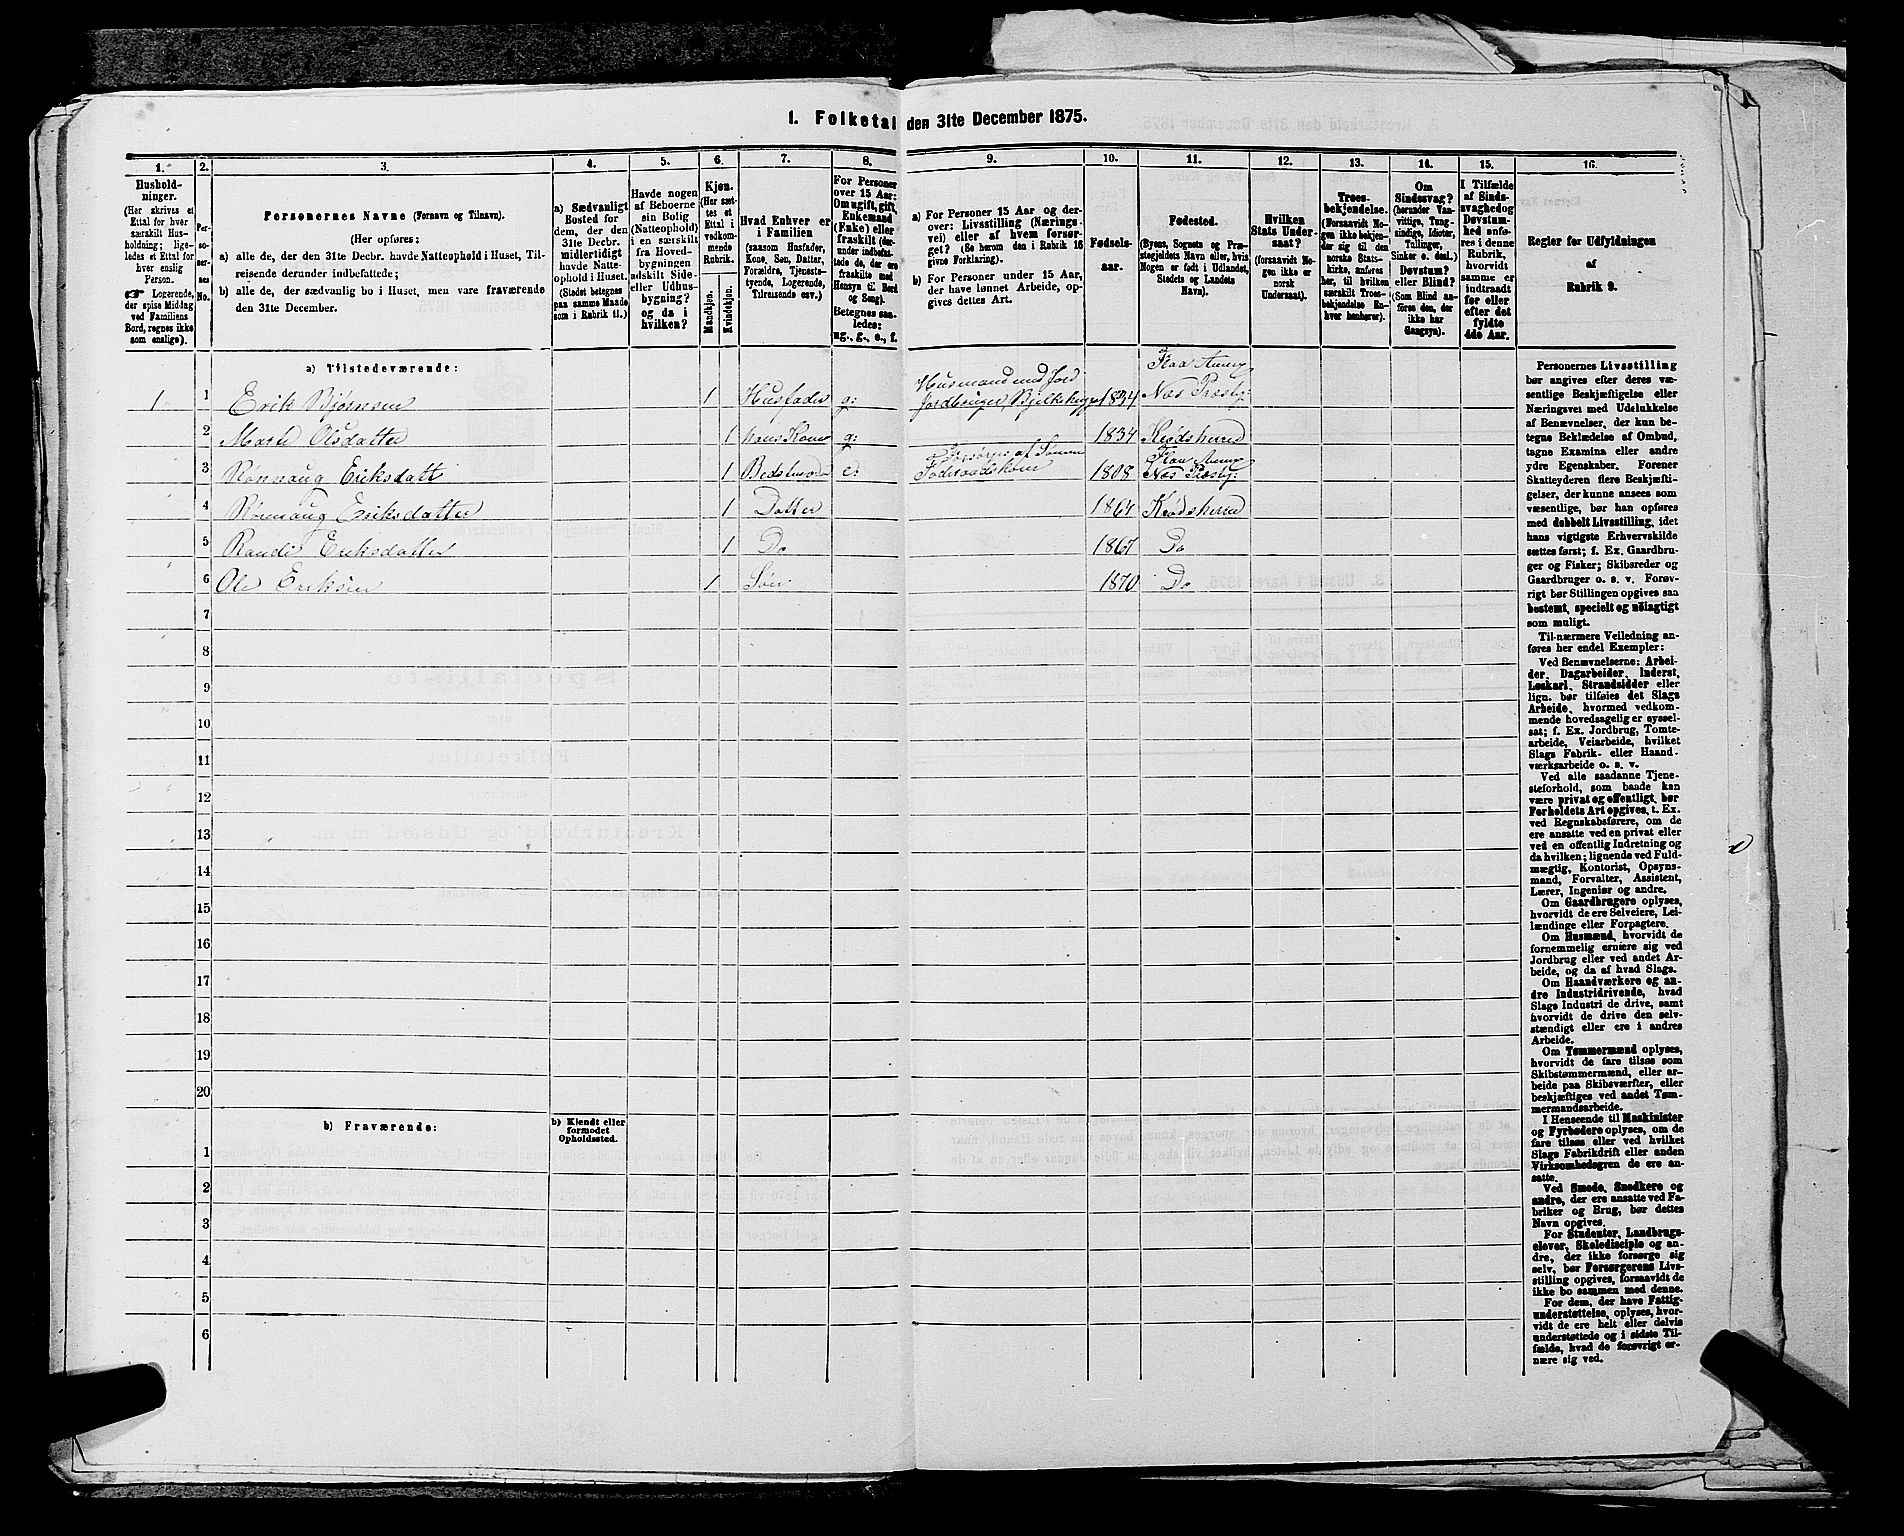 1. Folketal den 31te December 1875.
1. 2. 3. 4. 5. 6. 7. 8. 9. 10. 11. 12. 13. 14. 15. 16.
Hushold-
ninger.
(Her skrives et
Ettal for hver
særskilt Hus-
holdning; lige-
ledes et Ettal for
hver enslig
Person.
☞ Logerende,
der spise Middag
ved Familiens
Bord, regnes ikke
som enslige).
Per-
so-
ner-
nes
No.
Personernes Navne (Fornavn og Tilnavn).
(Her opføres:
a) alle de, der den 31te Decbr. havde Natteophold i Huset, Til-
reisende derunder indbefattede;
b) alle de, der sædvanlig bo i Huset, men vare fraværende
den 31te December.
a) Sædvanligt
Bosted for
dem, der den
31te Decbr.
midlertidigt
havde Natte-
ophold i Huset.
(Stedet betegnes
paa samme Maade
som i Rubrik 11.)
Havde nogen
af Beboerne
sin Bolig
(Natteophold)
i en særskilt
fra Hoved-
bygningen
adskilt Side-
eller Udhus-
bygning?
og da i
hvilken?
Kjøn.
(Her sæt-
tes et
Ettal i
vedkom-
mende
Rubrik.
Mandkjøn.
Kvindekjøn.
Hvad Enhver er
i Familien
(saasom Husfader,
Kone, Søn, Datter,
Forældre, Tjeneste-
tyende, Logerende,
Tilreisende osv.)
For Personer
over 15 Aar:
Om ugift, gift,
Enkemand
(Enke) eller
fraskilt (der-
under indbefat-
tede de, der ere
fraskilte med
Hensyn til Bord
og Seng).
Betegnes saa-
ledes:
ug., g., e., f.
a) For Personer 15 Aar og der-
over: Livsstilling (Nærings-
vei) eller af hvem forsør-
get? (Se herom den i Rubrik 16
givne Forklaring).
b) For Personer under 15 Aar,
der have lønnet Arbeide, op-
gives dettes Art.
Fødsels-
aar.
Fødested.
(Byens, Sognets og Præ-
stegjeldets Navn eller, hvis
Nogen er født i Udlandet,
Stedets og Landets
Navn).
Hvilken
Stats Under-
saat?
(forsaavidt No-
gen ikke er
norsk
Undersaat).
Troes-
bekjendelse.
(Forsaavidt No-
gen ikke bekjen-
der sig til den
norske Stats-
kirke, anføres
her, til hvilken
særskilt Troes-
bekjendelse En-
hver henhører).
Om
Sindssvag?
(herunder Van-
vittige, Tung-
sindige, Idioter,
Tullinger,
Sinker o. desl.)
Døvstum?
eller Blind?
(Som Blind an-
føres den, der
ikke har
Gangsyn).
I Tilfælde
af Sinds-
svaghed og
Døvstum-
hed anfø-
res i denne
Rubrik,
hvorvidt
samme er
indtraadt
før eller
efter det
fyldte
4de Aar.
Regler for Udfyldningen
af
Rubrik 9.
a) Tilstedeværende:
1 1 Erik Bjørnsen 1 Husfader g: Husmand med Jord Jordbruger, 1834 Flaa Næs Præstg:
2 Olsdatter 1 hans Kone g: 1834 Krødsherred
3 Rønnaug Eriksdatt 1 e: Forsørges af Sønnen 1808 Flaa Næs Præstg:
4 Rønnaug Eriksdatter 1 Datter 1864 Krødsherred
5 Randi Eriksdatter 1 Do 1867 Do
6 Ole Eriksen 1 Søn 1870 Do
7
8
9
10
11
12
13
14
15
16
17
18
19
20
b) Fraværende:
b) Kjendt eller
formodet
Opholdssted.
1
2
3
4
5
6
Personernes Livsstilling
bør angives efter deres væ-
sentlige Beskjæftigelse eller
Næringsvei med Udelukkelse
af Benævnelser, der kun be-
tegne Beklædelse af Ombud,
tagne Examina eller andre
ydre Egenskaber. Forener
Skatteyderen flere Beskjæfti-
gelser, der kunne ansees som
væsentlige, bør han opføres
med dobbelt Livsstilling, idet
hans vigtigste Erhvervskilde
sættes først; f. Ex. Gaardbru-
ger og Fisker; Skibsreder og
Gaardbruger o. s. v. Forøv-
rigt bør Stillingen opgives saa
bestemt, specielt og nöiagtigt
som muligt.
Til nærmere Veiledning an-
føres her endel Exempler:
Ved Benævnelserne: Arbei-
der, Dagarbeider, Inderst,
Løskarl, Strandsidder eller
lign. bør tilføies det Slags
Arbeide, hvormed vedkom-
mende hovedsagelig er syssel-
sat; f. Ex. Jordbrug, Tomte-
arbeide, Veiarbeide, hvilket
Slags Fabrik- eller Haand-
værksarbeide o. s. v.
Ved alle saadanne Tjene-
steforhold, som baade kan
være privat og offentligt, bør
Forholdets Art opgives, t. Ex.
ved Regnskabsførere, om de
ere ansatte ved en privat eller
ved en offentlig Indretning og
da hvilken; lignende ved Fuld-
mægtig, Kontorist, Opsyns-
mand, Forvalter, Assistent,
Lærer, Ingeniør og andre.
Om Gaardbrugere oplyses,
hvorvidt de ere Selveiere, Lei-
lændinge eller Forpagtere.
Om Husmænd, hvorvidt de
fornemmelig ernære sig ved
Jordbrug eller ved andet Ar-
beide, og da af hvad Slags.
Om Haandværkere og an-
dre Industridrivende, hvad
Slags Industri de drive, samt
hvorvidt de drive den selv-
stændigt eller ere i andres
Arbeide.
Om Tømmermænd oplyses,
hvorvidt de fare tilsøs som
Skibstømmermænd, eller ar-
beide paa Skibsværfter, eller
beskjæftiges ved andet Tøm-
mermandsarbeide.
I Henseende til Maskinister
og Fyrbødere oplyses, om de
fare tilsøs eller ved hvilket
Slags Fabrikdrift eller anden
Virksomhedsgren de ere an-
satte.
Ved Smede, Snedkere og
andre, der ere ansatte ved Fa-
briker og Brug, bør dettes
Navn opgives.
For Studenter, Landbrugs-
elever, Skoledisciple og an-
dre, der ikke forsørge sig
selv, bør Forsørgerens Livs-
stilling opgives, forsaavidt de
ikke bo sammen med denne.
For dem, der have Fattig-
understøttelse, oplyses, hvor-
vidt de ere helt eller delvis
understøttede og i sidste Til-
fælde, hvad de forøvrigt er-
nære sig ved.